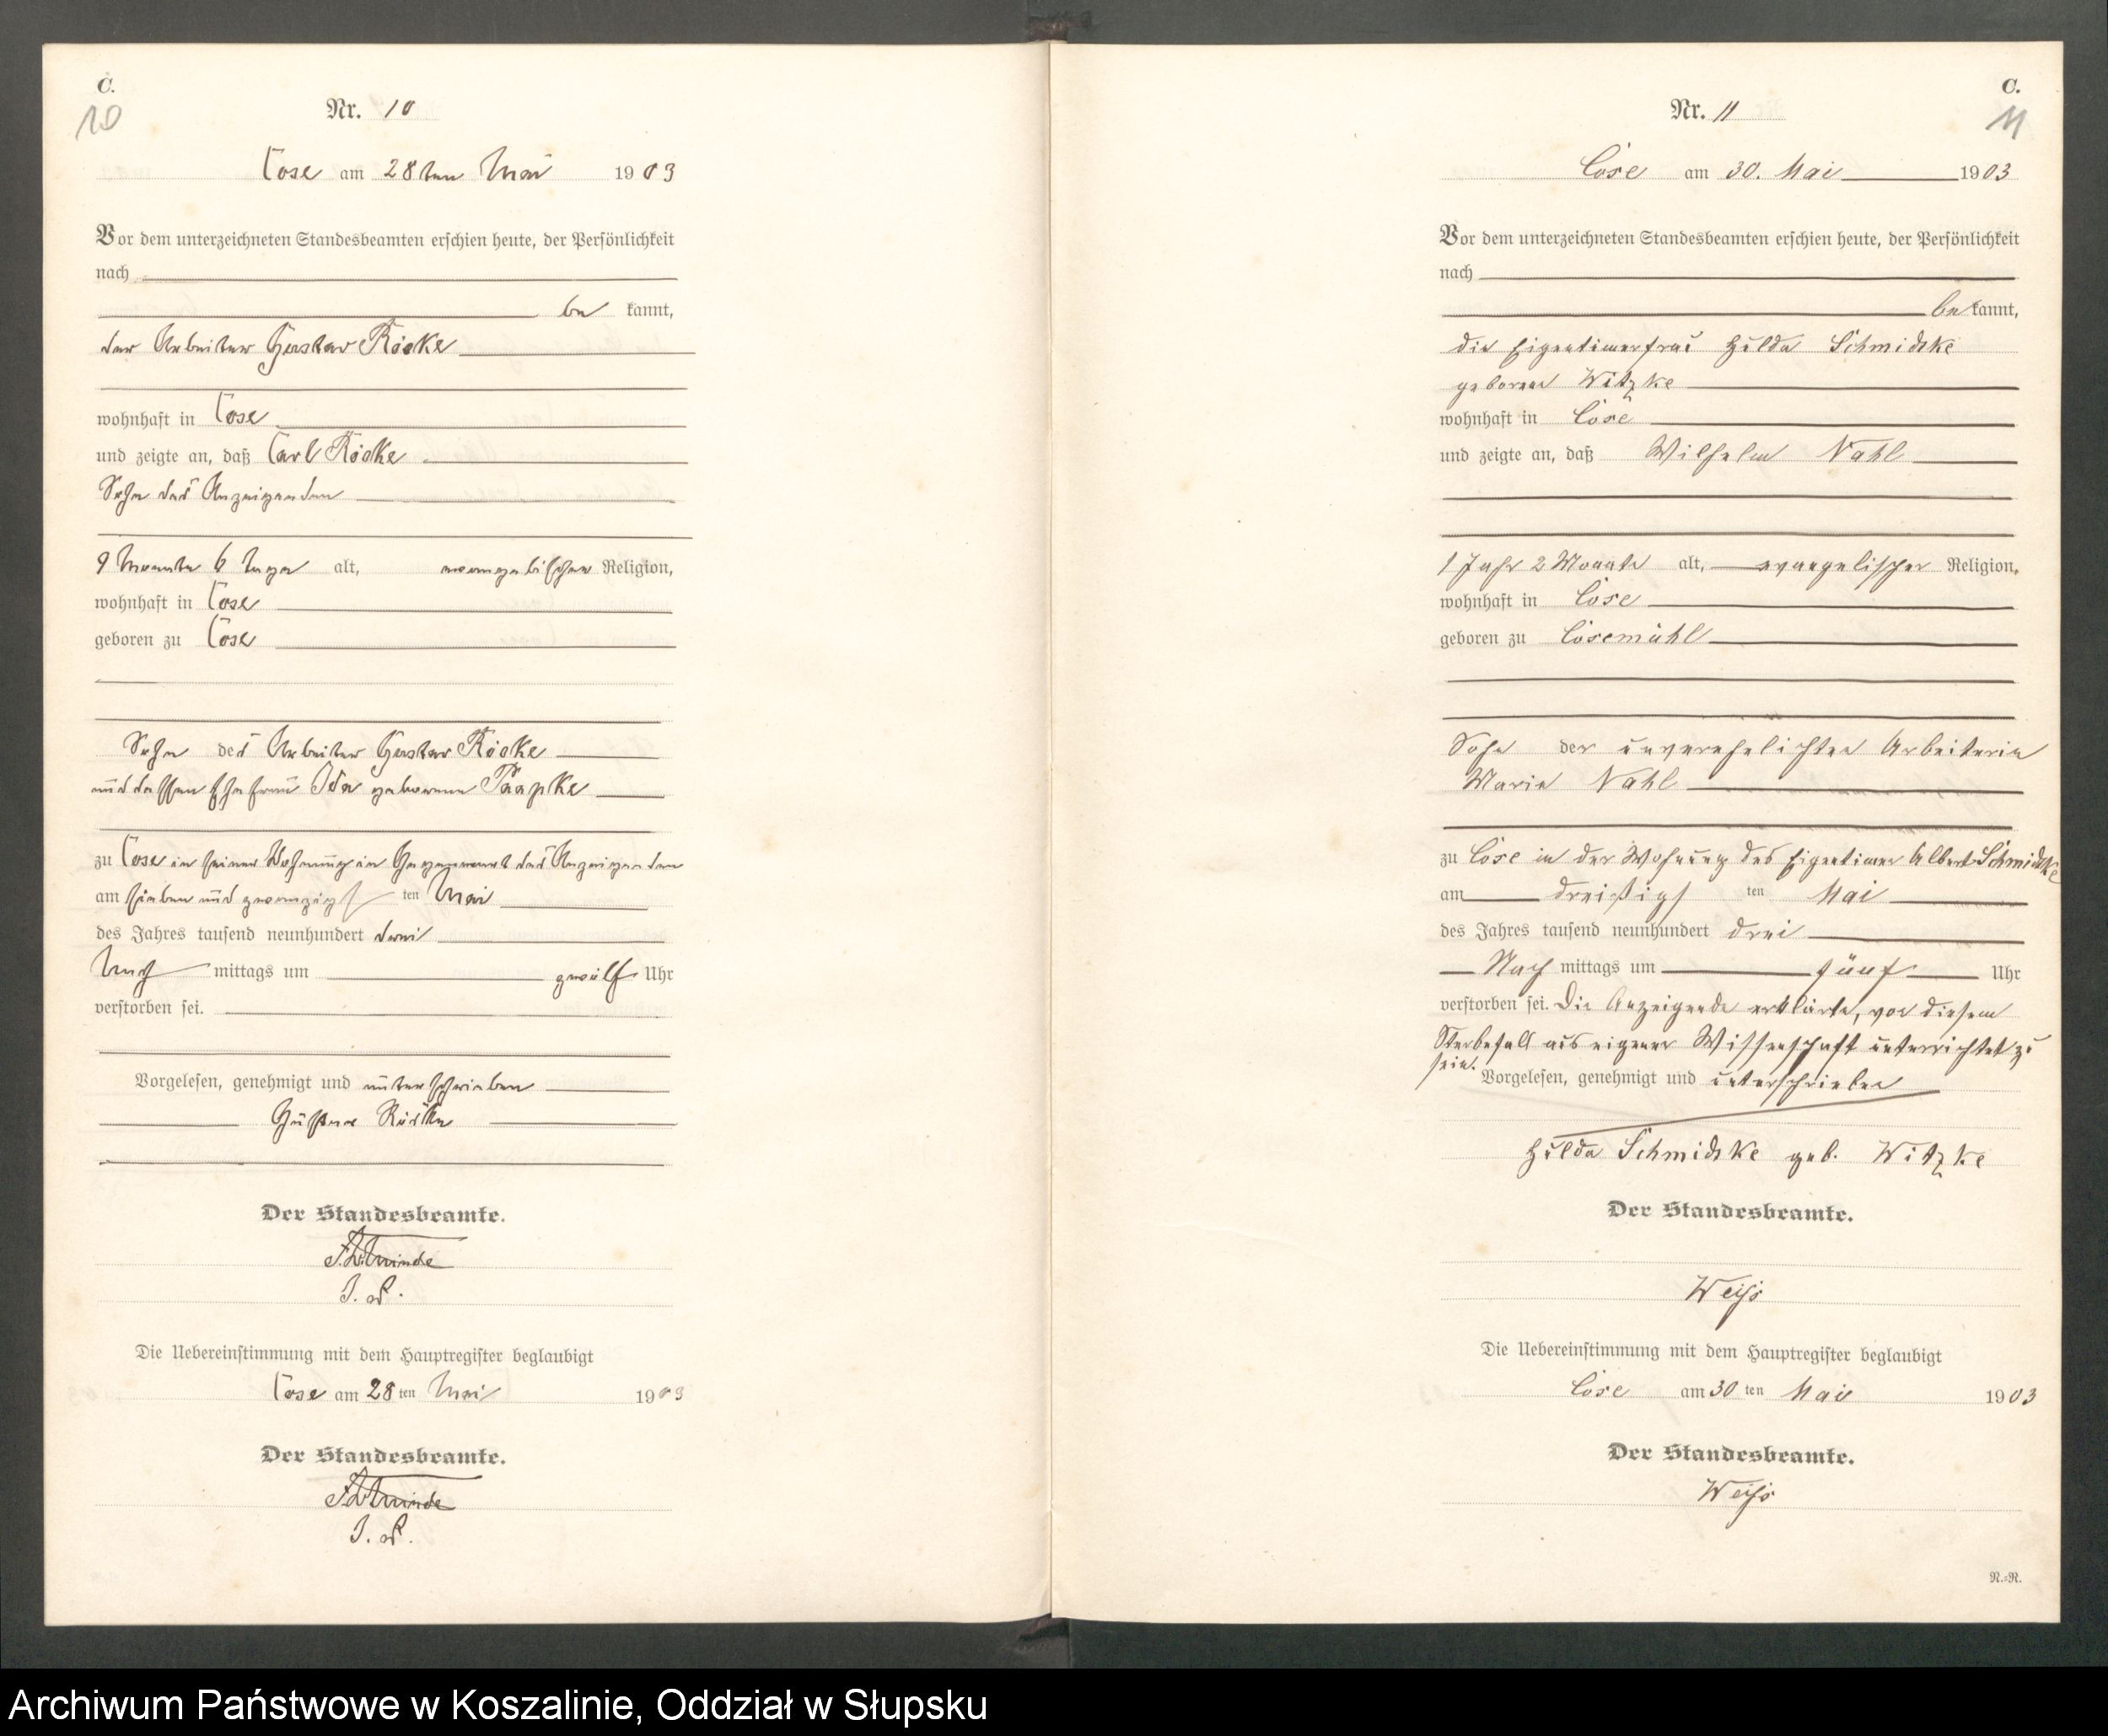 C.
10
Nr. 10
Cose am 28ten Mai 1903
Vor dem unterzeichneten Standesbeamten erschien heute, der Persönlichkeit
nach
be kannt,
der Arbeiter Gustav Röske
wohnhaft in Cose
und zeigte an, daß Carl Röske
Sohn des Anzeigenden
9 Monate 6 Tage alt, evangelischer Religion,
wohnhaft in Cose
geboren zu Cose
Sohn des Arbeiter Gustav Röske
und dessen Ehefrau Ida geborene Paapke
zu Cose in seiner Wohnung in Gegenwart des Anzeigenden
am sieben und zwanzigsten Mai
des Jahres tausend neunhundert drei
Nach mittags um zwölf Uhr
verstorben sei.
Vorgelesen, genehmigt und unterschrieben
Gustav Röske
Der Standesbeamte.
Die Uebereinstimmung mit dem Hauptregister beglaubigt
Cose am 28 ten Mai 1903
Der Standesbeamte.
C.
11
Nr. 11
Cose am 30. Mai 1903
Vor dem unterzeichneten Standesbeamten erschien heute, der Persönlichkeit
nach
be kannt,
die Eigentümerfrau Hulda Schmidtke
geborene Witzke
wohnhaft in Cose
und zeigte an, daß Wilhelm Nahl
1 Jahr 2 Monate alt, evangelischer Religion,
wohnhaft in Cose
geboren zu Cosemühl
Sohn der unverehelichten Arbeiterin
Marie Nahl
zu Cose in der Wohnung des Eigentümer Albert Schmidtke
am dreißigsten Mai
des Jahres tausend neunhundert drei
Nach mittags um fünf Uhr
verstorben sei. Die Anzeigende erklärte, von diesem
Sterbefall aus eigener Wissenschaft unterrichtet zu
sein.
Vorgelesen, genehmigt und unterschrieben
Hulda Schmidtke geb. Witzke
Der Standesbeamte.
Weiß
Die Uebereinstimmung mit dem Hauptregister beglaubigt
Cose am 30 ten Mai 1903
Der Standesbeamte.
Weiß
N.=N.
Archiwum Państwowe w Koszalinie, Oddział w Słupsku